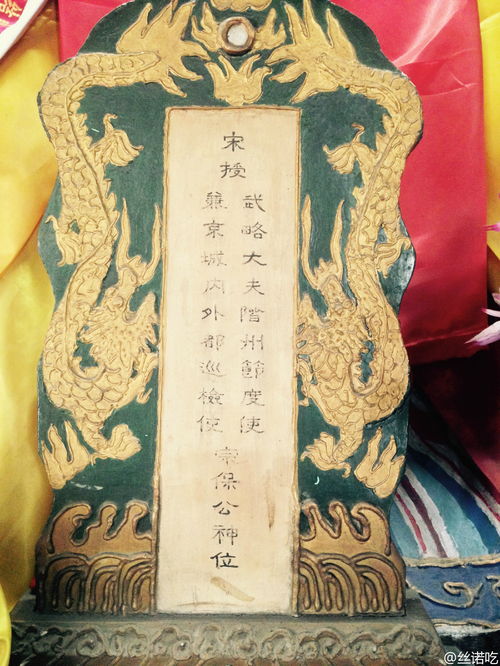 宋授
武略大夫階州節度使
兼京城内外都巡檢使
宗保公神位
@丝诺吃